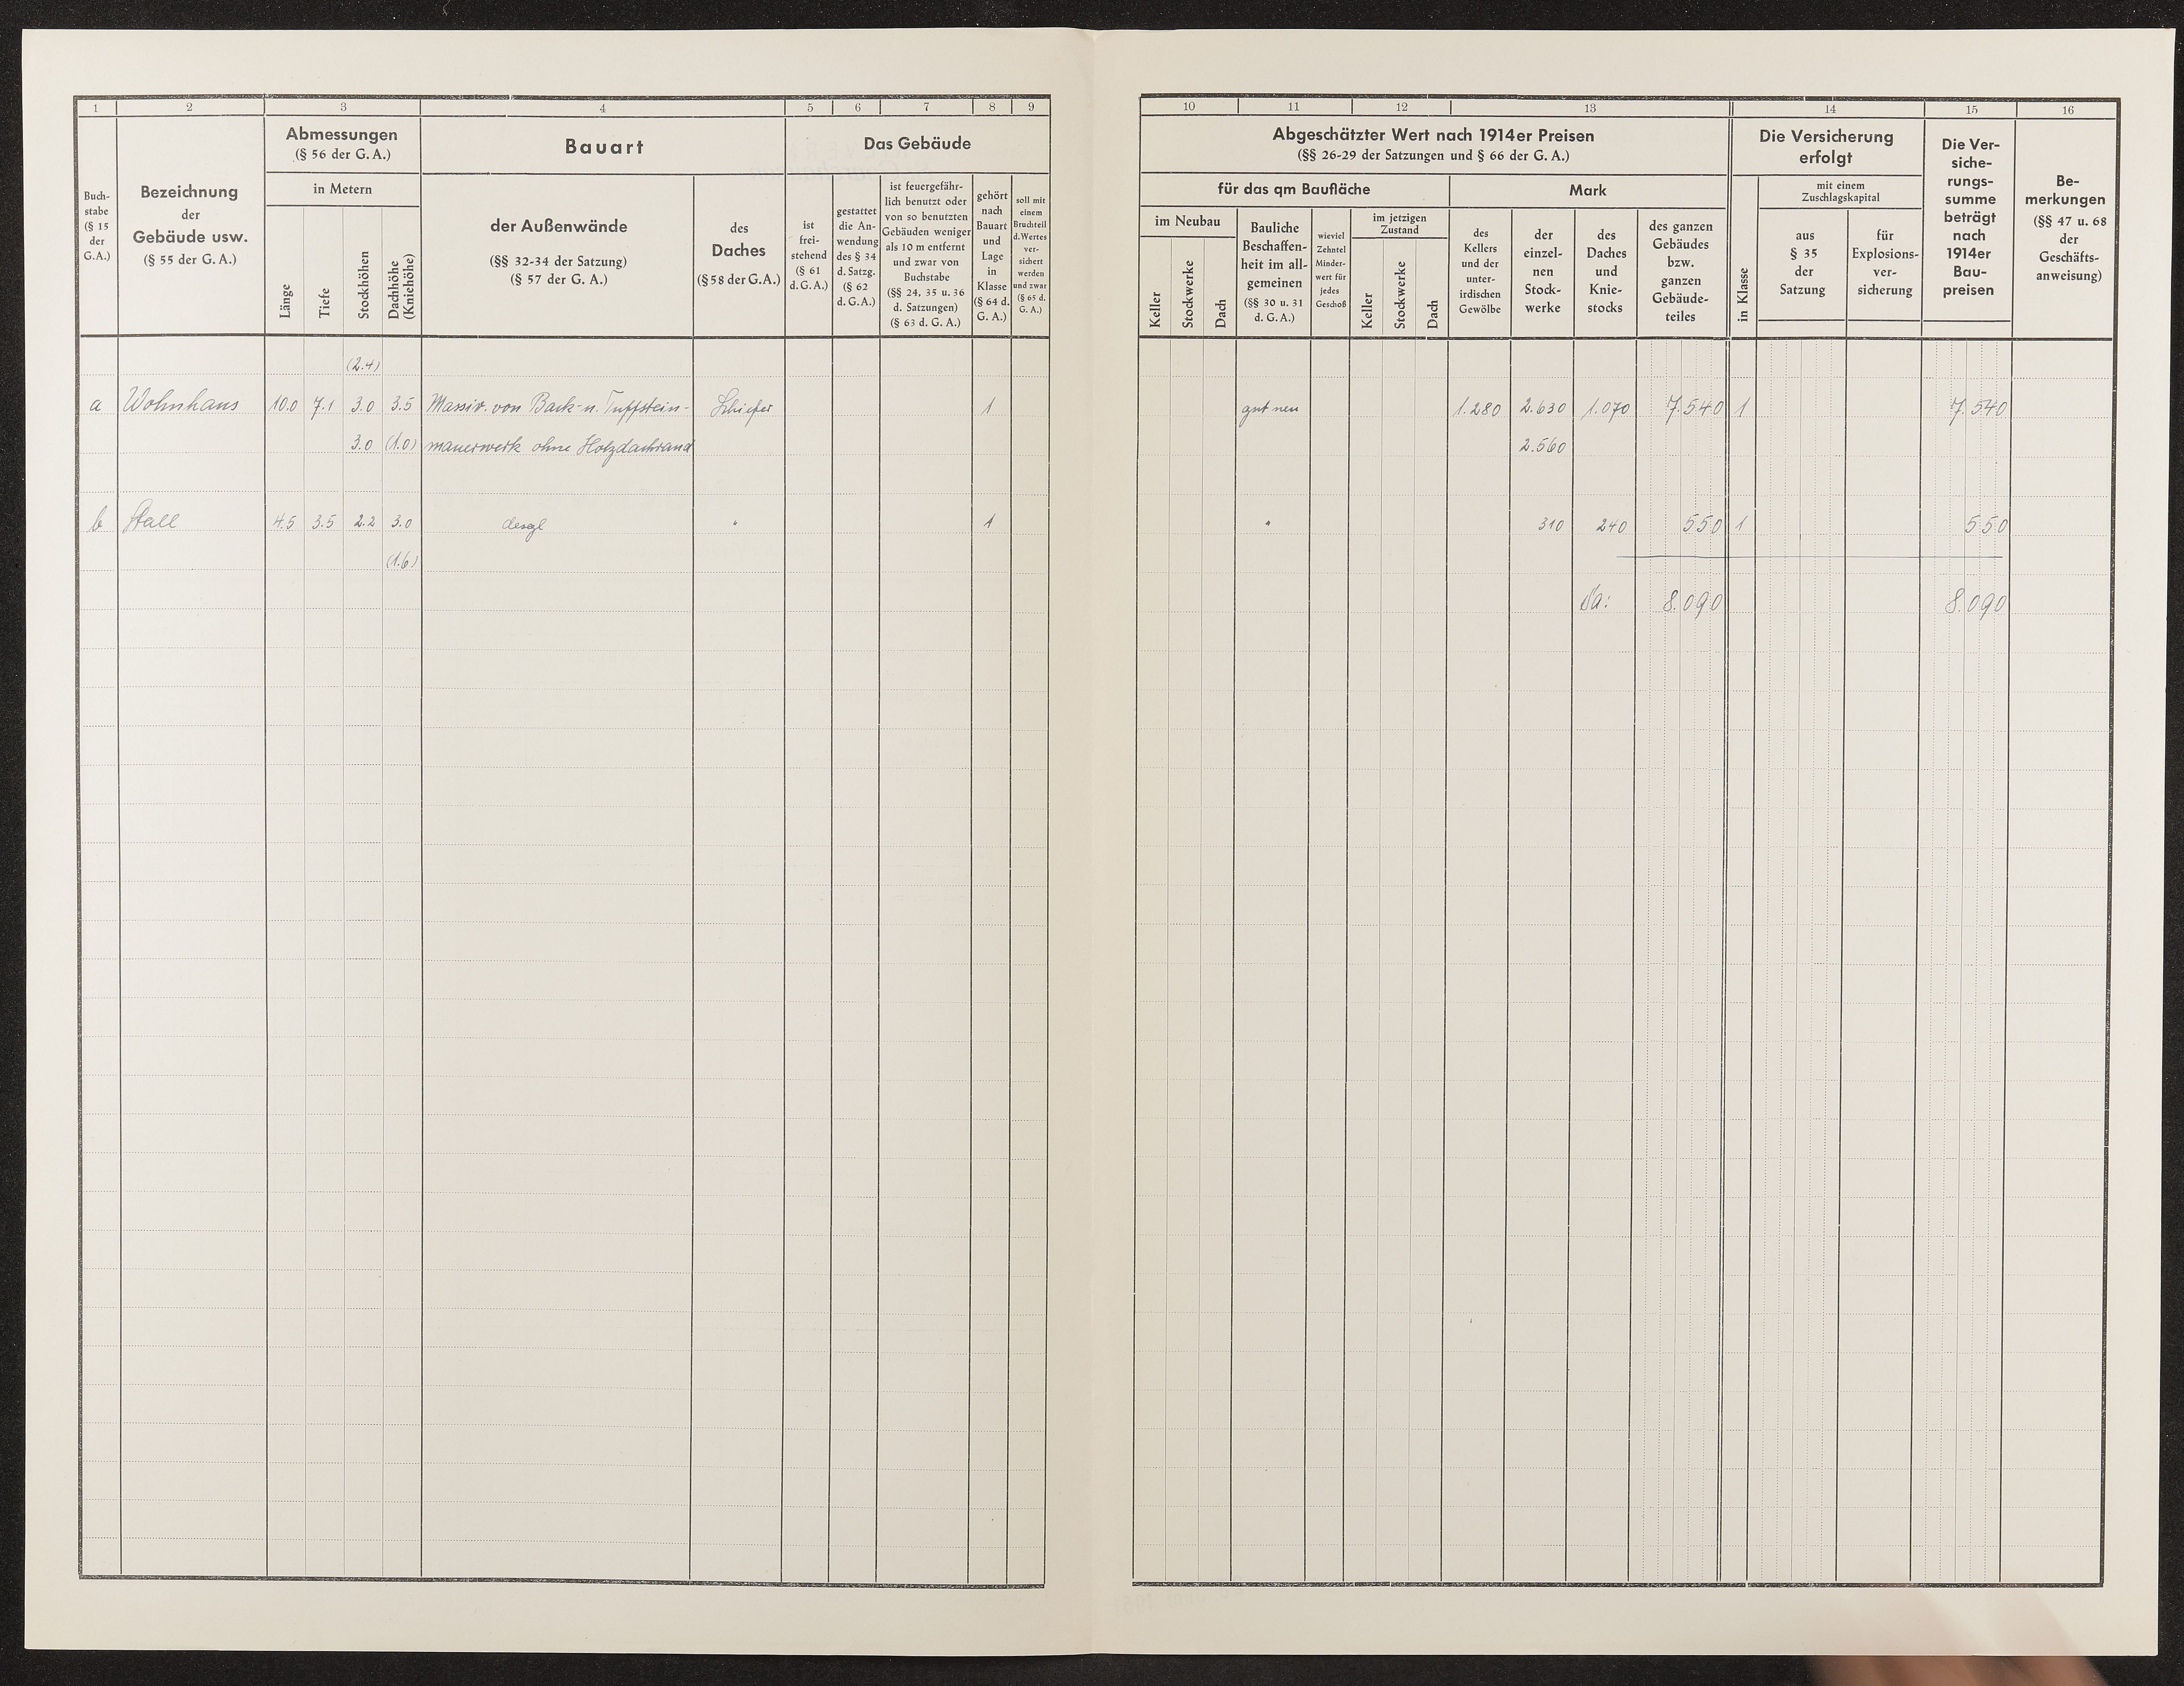 1 2 3 4 5 6 7 8 9
Buch-
stabe
(§ 15
der
G.A.)
Bezeichnung
der
Gebäude usw.
(§ 55 der G. A.)
Abmessungen
(§ 56 der G. A.)
in Metern
Länge
Tiefe
Stockhöhen
Dachhöhe
(Kniehöhe)
Bauart
der Außenwände
(§§ 32-34 der Satzung)
(§ 57 der G. A.)
des
Daches
(§ 58 der G.A.)
Das Gebäude
ist
frei-
stehend
(§ 61
d. G. A.)
gestattet
die An-
wendung
des § 34
d. Satzg.
(§ 62
d. G. A.)
ist feuergefähr-
lich benutzt oder
von so benutzten
Gebäuden weniger
als 10 m entfernt
und zwar von
Buchstabe
(§§ 24, 35 u. 36
d. Satzungen)
(§ 63 d. G. A.)
gehört
nach
Bauart
und
Lage
in
Klasse
(§ 64 d.
G. A.)
soll mit
einem
Bruchteil
d. Wertes
ver-
sichert
werden
und zwar
(§ 65 d.
G. A.)
(2.4)
a Wohnhaus 10.0 7.1 3.0 3.5 Massiv. von Back- u. Tuffstein- Schiefer 1
3.0 (1.0) mauerwerk ohne Holzdachrand
b Stall 4.5 3.5 2.2 3.0 desgl " 1
(1.6)
10 11 12 13 14 15 16
Abgeschätzter Wert nach 1914er Preisen
(§§ 26-29 der Satzungen und § 66 der G. A.)
für das qm Baufläche
im Neubau
Keller
Stockwerke
Dach
Bauliche
Beschaffen-
heit im all-
gemeinen
(§§ 30 u. 31
d. G. A.)
wieviel
Zehntel
Minder-
wert für
jedes
Geschoß
im jetzigen
Zustand
Keller
Stockwerke
Dach
Mark
des
Kellers
und der
unter-
irdischen
Gewölbe
der
einzel-
nen
Stock-
werke
des
Daches
und
Knie-
stocks
des ganzen
Gebäudes
bzw.
ganzen
Gebäude-
teiles
Die Versicherung
erfolgt
in Klasse
mit einem
Zuschlagskapital
aus
§ 35
der
Satzung
für
Explosions-
ver-
sicherung
Die Ver-
siche-
rungs-
summe
beträgt
nach
1914er
Bau-
preisen
Be-
merkungen
(§§ 47 u. 68
der
Geschäfts-
anweisung)
gut neu 1.280 2.630 1.070 7.540 1 7.540
2.560
" 310 240 550 1 550
Sa: 8.090 8.090